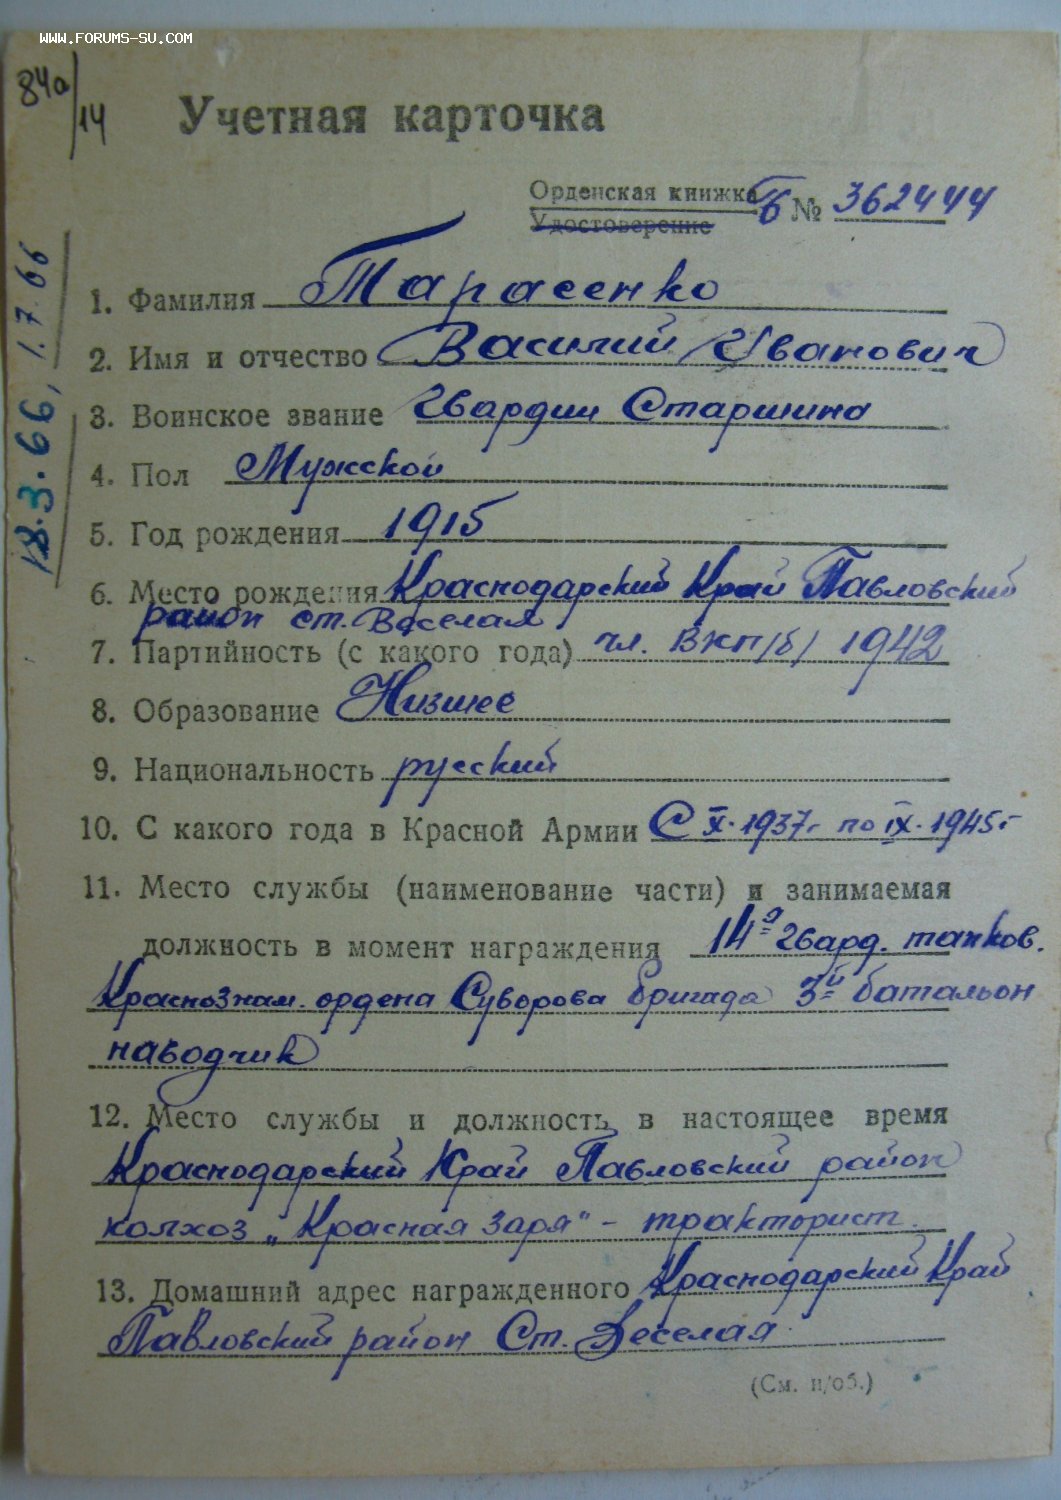 WWW.FORUMS-SU.COM
84а/14
Учетная карточка
Орденская книжка Б № 362444
Удостоверение
18.3.66, 1.7.66
1. Фамилия Тарасенко
2. Имя и отчество Василий Иванович
3. Воинское звание Гвардии Старшина
4. Пол Мужской
5. Год рождения 1915
6. Место рождения Краснодарский Край Павловский
район ст. Веселая
7. Партийность (с какого года) чл. ВКП/б/ 1942
8. Образование Низшее
9. Национальность русский
10. С какого года в Красной Армии С X. 1937г по IX. 1945г
11. Место службы (наименование части) и занимаемая
должность в момент награждения 14я гвард. танков.
Краснознам. ордена Суворова бригада 3й батальон
наводчик
12. Место службы и должность в настоящее время
Краснодарский Край Павловский район
колхоз „Красная Заря" - тракторист.
13. Домашний адрес награжденного Краснодарский Край
Павловский район Ст. Веселая
(См. н/об.)